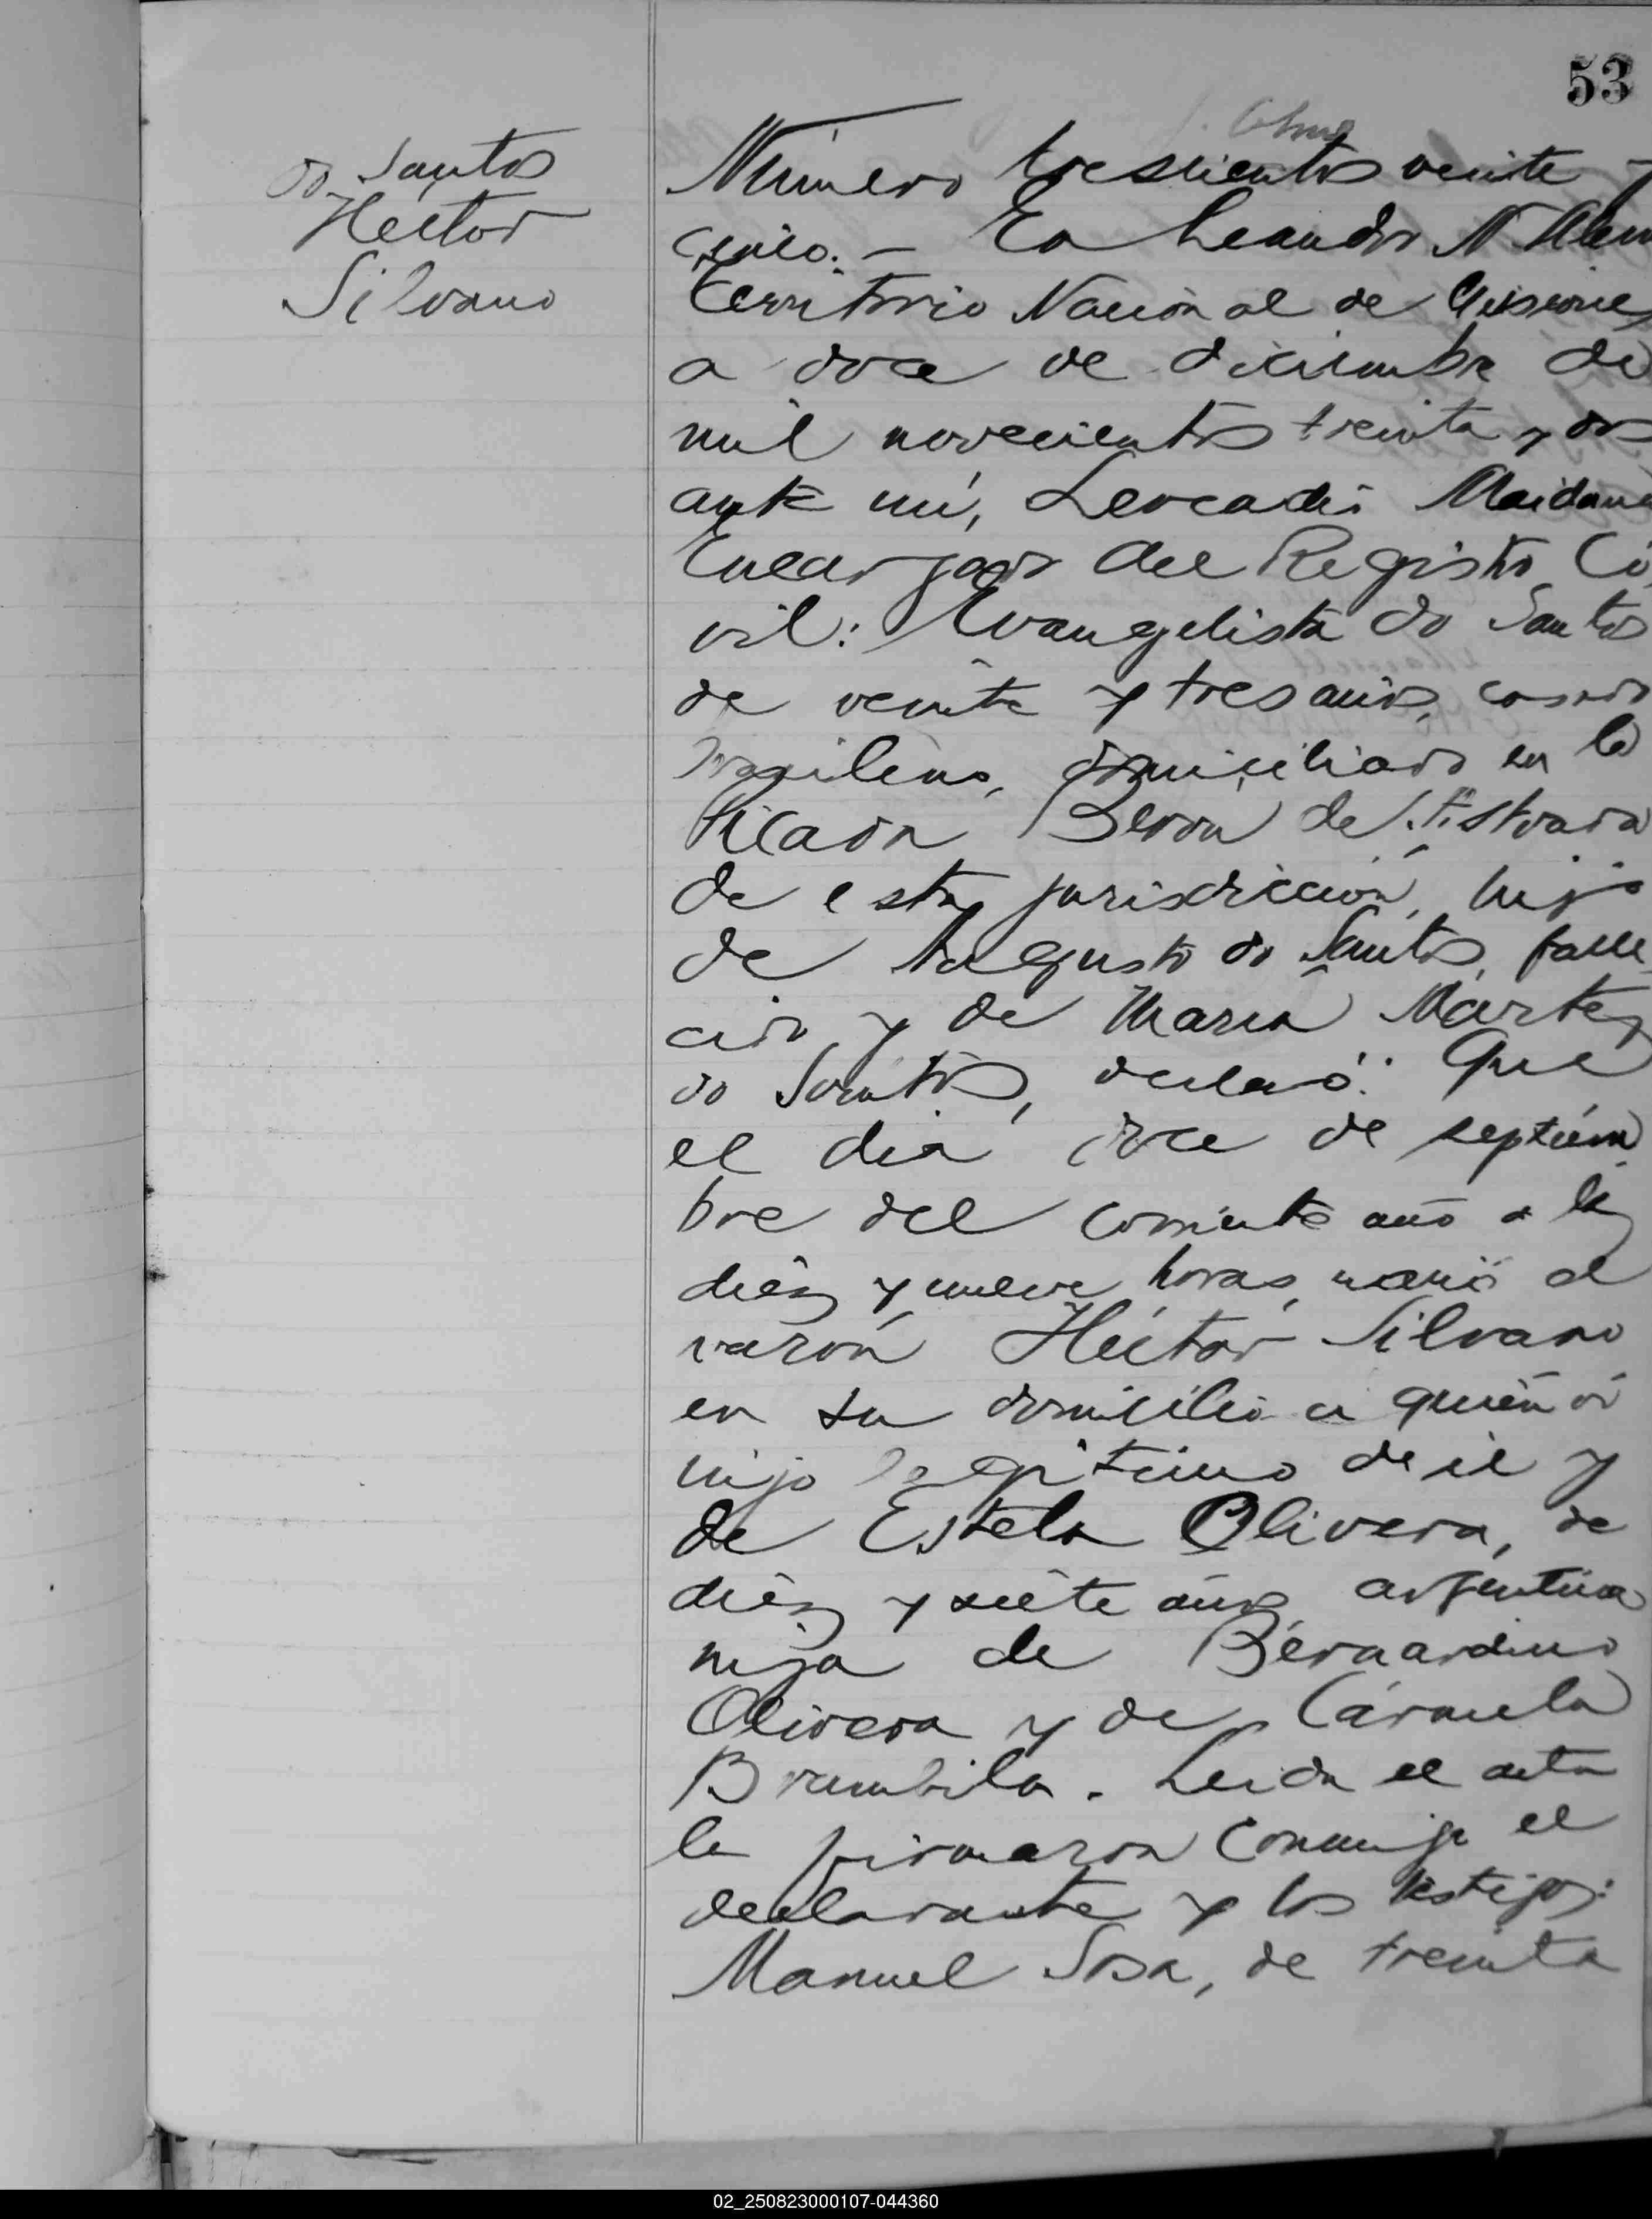 53
do Santos
Héctor
Silvano
Número trescientos veinte y
cinco. - En Leandro N. Alem
Territorio Nacional de Misiones
a doce de diciembre de
mil novecientos treinta y dos
ante mí, Leocadio Maidana
Encargado del Registro Ci
vil: Evangelista do Santos
de veinte y tres años, casado
brasileño, domiciliado en la
Picada Berón de Astrada
de esta jurisdicción, hijo
de Augusto do Santos, falle
cido y de María Martes
do Santos, declaró: Que
el día doce de septiem
bre del corriente año a las
diez y nueve horas, nació el
varón Héctor Silvano
en su domicilio a quien vi
hijo legítimo de él y
de Estela Olivera, de
diez y siete años, argentina
hija de Bernardino
Olivera y de Cármela
Brambila. Leida el acta
la firmaron conmigo el
declarante y los testigos:
Manuel Sosa, de treinta
02_250823000107-044360